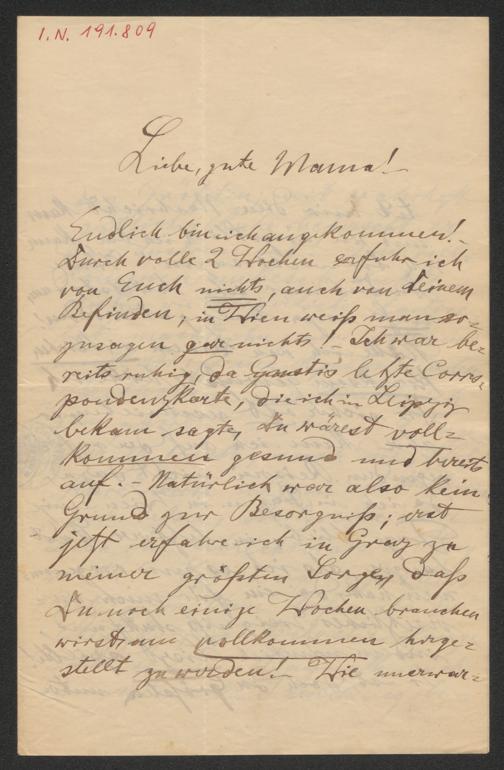 I.N. 191.809
Liebe, gute Mama!
Endlich bin ich angekommen! –
Durch volle 2 Wochen erfuhr ich
von Euch nichts, auch von Deinem
Befinden; in Wien weiß man so-
zusagen gar nichts! – Ich war be-
reits ruhig, da Gustis letzte Corres-
pondenzkarte, die ich in Leipzig
bekam sagte, Du wärest voll-
kommen gesund und bereits
auf. – Natürlich war also kein
Grund zur Besorgniß; erst
jetzt erfahre ich in Graz zu
meiner größten Sorge, daß
Du noch einige Wochen brauchen
wirst um vollkommen herge-
stellt zu werden! – Wie unerwar-